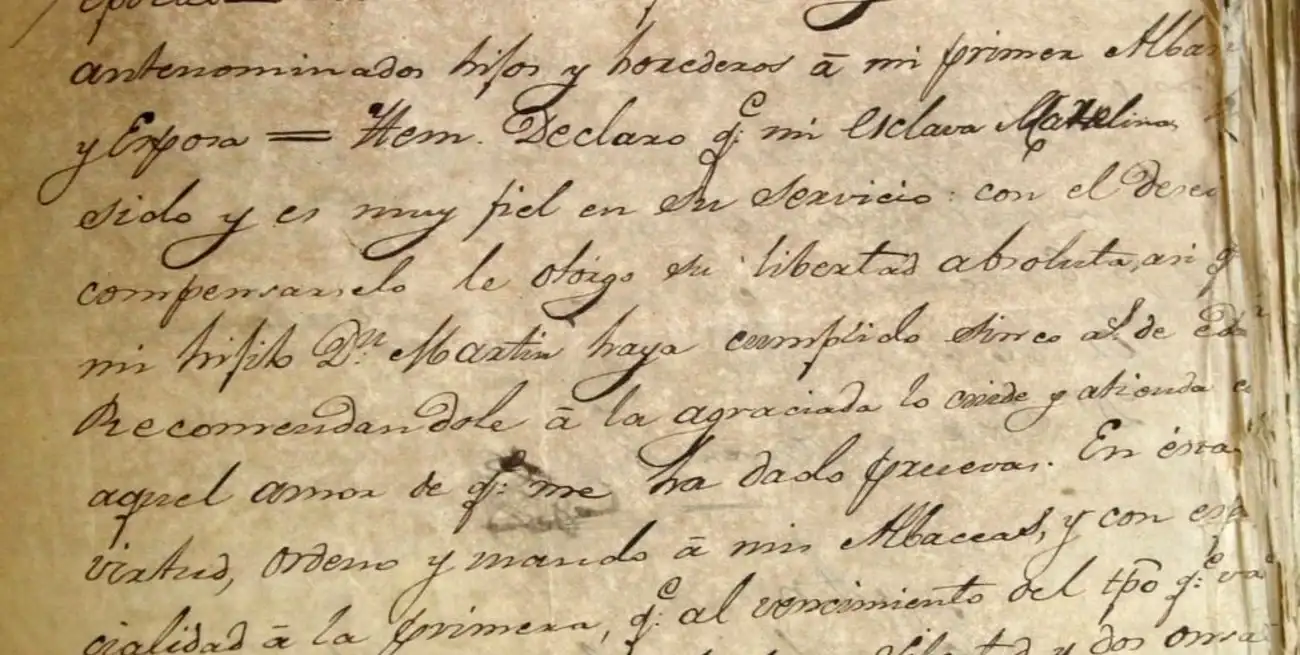 antenominados hijos y horederos â mi primer Alba
y Esposa = Item. Declaro q.e mi esclava
sido y es muy fiel en su servicio: con el
compensarselo le otorgo su libertad absoluta, asi q.e
mi hijito D.n Martin haya cumplido sinco a.s de
Recomendandole â la agraciada lo cuide y atienda
aquel amor de q.e me ha dado pruevas. En
virtud, ordeno y mando â mis Albaceas, y con esp
cialidad â la primera, q.e al vencimiento del tpõ q.e va
y dos onsa